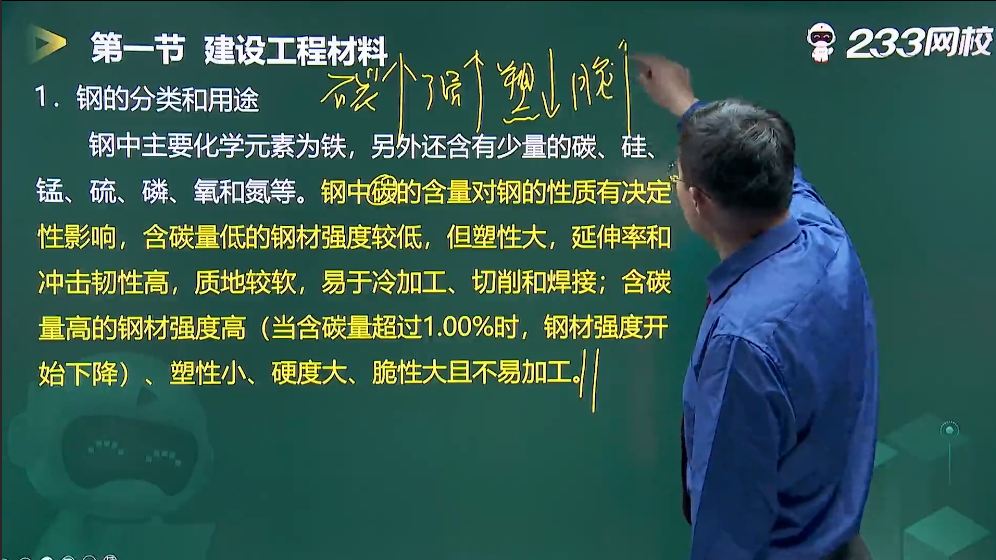 第一节 建设工程材料
233网校
碳↑ 强↑ 塑↓ 脆↑
1．钢的分类和用途
钢中主要化学元素为铁，另外还含有少量的碳、硅、
锰、硫、磷、氧和氮等。钢中碳的含量对钢的性质有决定
性影响，含碳量低的钢材强度较低，但塑性大，延伸率和
冲击韧性高，质地较软，易于冷加工、切削和焊接；含碳
量高的钢材强度高（当含碳量超过1.00%时，钢材强度开
始下降）、塑性小、硬度大、脆性大且不易加工。